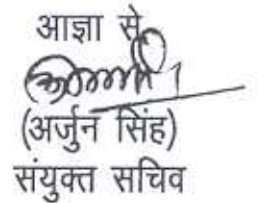 आज्ञा से
(अर्जुन सिंह)
संयुक्त सचिव